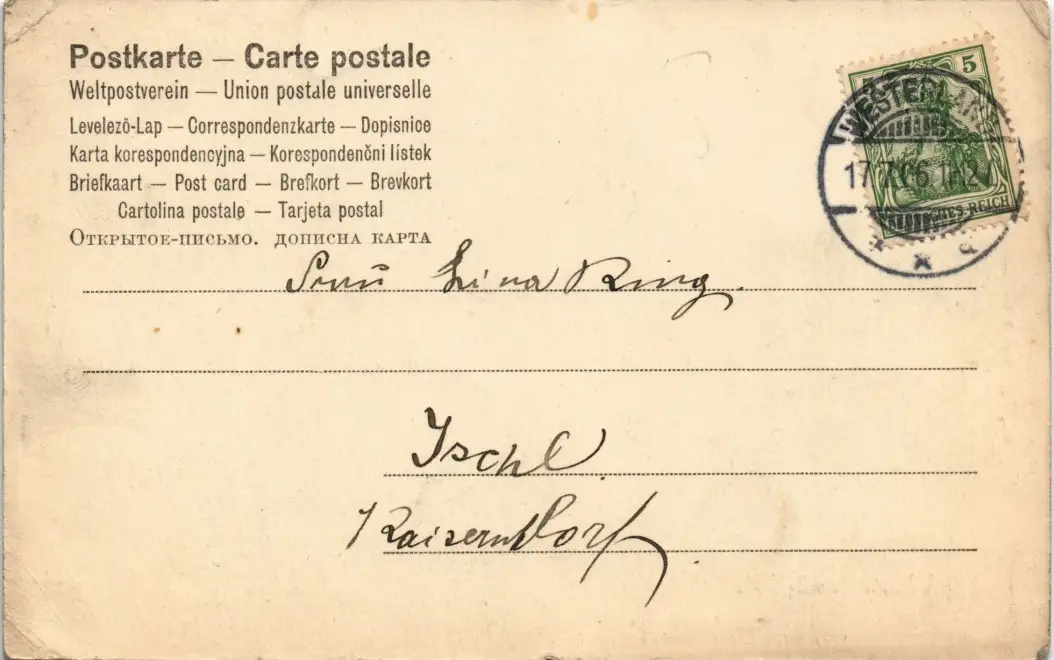 Postkarte — Carte postale
Weltpostverein — Union postale universelle
Levelezö-Lap — Correspondenzkarte — Dopisnice
Karta korespondencyjna — Korespondenčni lístek
Briefkaart — Post card — Brefkort — Brevkort
Cartolina postale — Tarjeta postal
Открытое-письмо. дописна карта
5
WESTERLAND
17.7.06
REICH
Frau Lina Ring.
Ischl